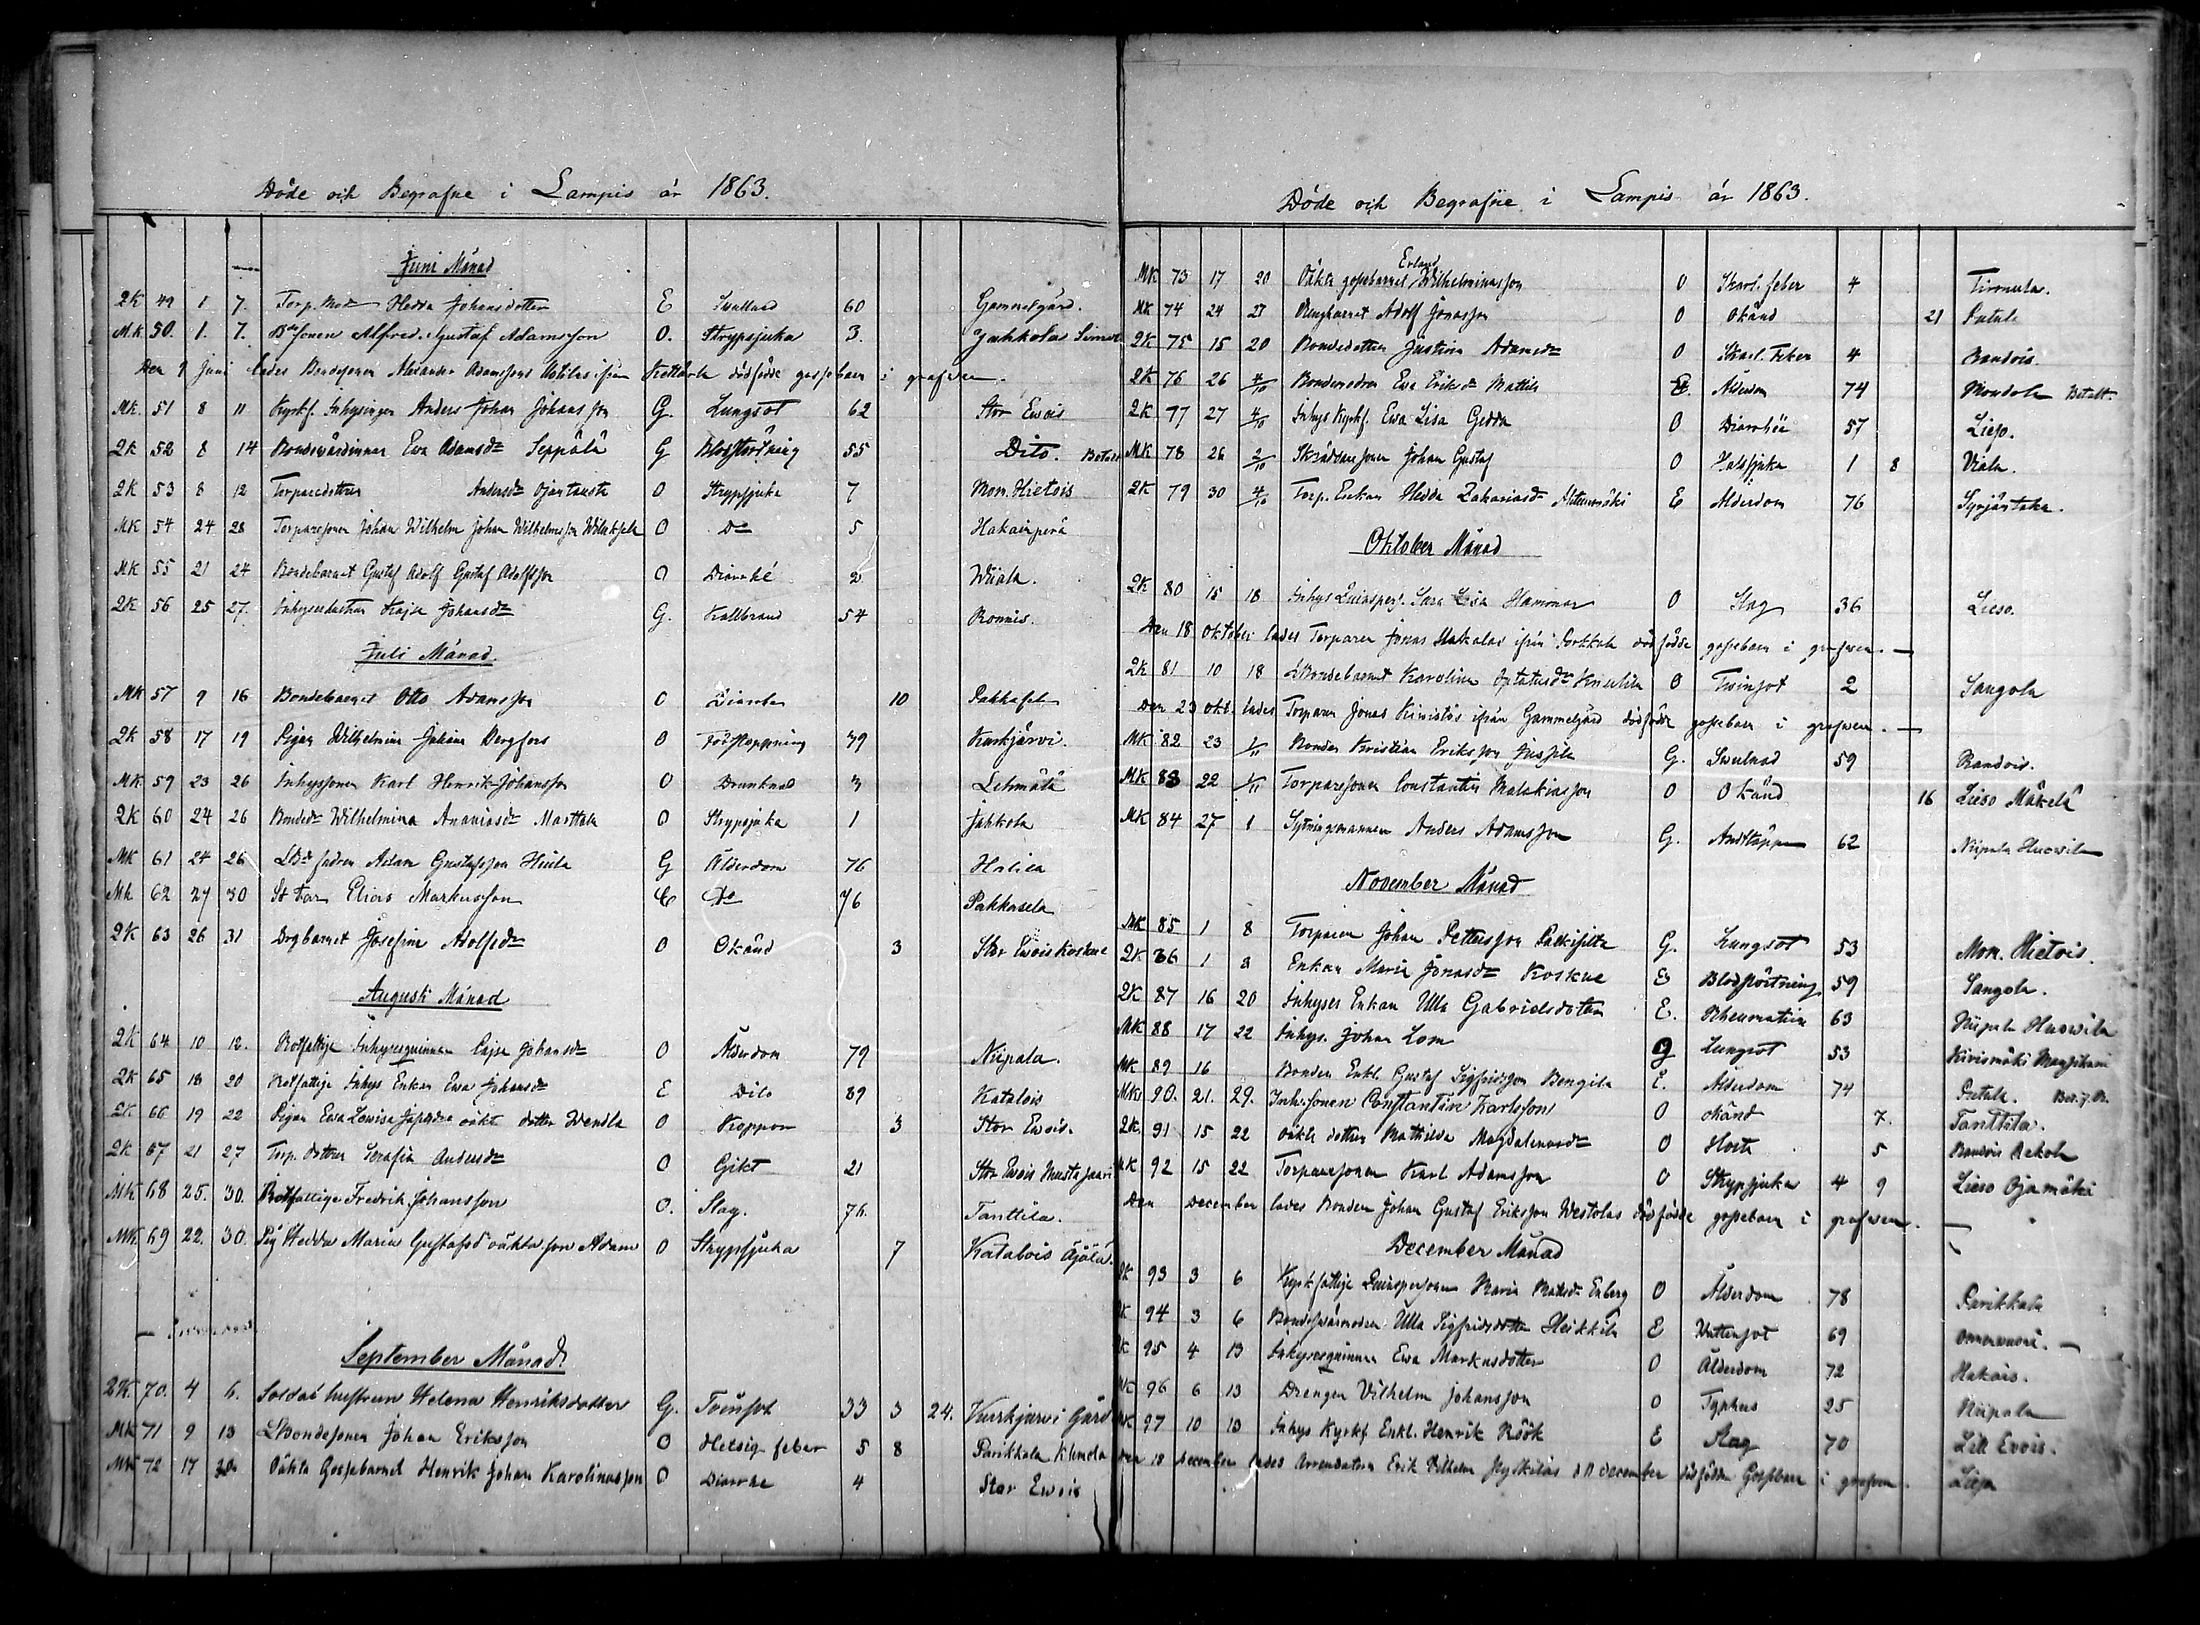 Döde och Begrafne i Lampis år 1863.
Juni Månad
QK 49 1 7. Torp. Mod Hedda Johansdotter E Swullnad 60 Gammelgård.
M.K. 50. 1. 7. Bdesonen Alfred Gustaf Adamsson O. Strypsjuka 3. Jahkola
Den 9 Juni lades Bondesonen Alexander Adamssons ifrån dödfödde gossebarn i grafwen.
MK. 51 8 11 Kyrkf. Inhysingen Anders Johan Johansson G. Lungsot 62 Stor Ewois
QK 52 8 14 Bondewärdinnan Ewa Adamsdr Seppälä G Blodstörtning 55 Dito. Betalt
QK 53 8 12 Torparedottren Andersdr Ojantausta O Strypsjuka 7 Mon. Hietois
MK 54 24 28 Torparesonen Johan Wilhelm Johan Wilhelmsson O Do 5 Hakainperä
MK 55 21 24 Bondebarnet Gustaf Adolf Gustaf Adolfsson O Diarrhé 2 Wiiala.
QK 56 25 27. Inhyseshustrun Kajsa Johansdr G. Kallbrand 54 Ronnis.
Juli Månad.
MK 57 9 16 Bondebarnet Otto Adamsson O Diarrhe 10 Pakkasela
QK 58 17 19 Pigan Wilhelmina Juliana Bergfors O Förstoppning 39 Kurkjärvi.
MK. 59 23 26 Inhyssonen Karl Henrik Johansson O Drunknad 3 Lehmälä
QK 60 24 26 Bondedr Wilhelmina Ananiasdr Marttala O Strypsjuka 1 Jahkola
MK 61 24 26 LBde fadren Adam Gustafsson G Ålderdom 76
Mk 62 27 30 St Far Elias Markusson E Do 76 Pakkasela
QK 63 26 31 Drgbarnet Josefina Adolfsdr O Okänd 3 Stor Ewois Koskue
Augusti Månad
QK 64 10 12. Rotfattige Inhysesquinnan Cajsa Johansdr O Ålderdom 79 Niipala.
QK 65 18 20 Rotfattige Inhys Enkan Ewa Johansdr E Dito 89 Katalois
QK 66 19 22 Pigan Ewa Lowisa oäkt dotter Wendla O Koppor 3 Stor Ewois.
QK 67 21 27 Torp. dottren Serafia Andersdr O Gikt 21 Stor Ewois Mustajärvi
MK 68 25. 30. Rotfattige Fredrik Johansson O. Slag. 76. Tanttila.
MK 69 22. 30. Pig Hedda Maria Gustafsd oäkta son Adam O Strypsjuka 7 Katalois Äjälä.
September Månad.
QK. 70. 4 6. Soldat hustrun Helena Henriksdotter G. Twinsot 33 3 24. Kurkjärvi Gård
MK 71 9 13 LBondesonen Johan Eriksson O Hetsig feber 5 8 Parikkala
MK 72 17 20 Oäkta Gossebarnet Henrik Johan Karolinasson O Diarrhe 4 Stor Ewois
Döde och Begrafne i Lampis år 1863.
MK 73 17 20 Oäkta gossebarnet Erland Wilhelminasson O Skarl. feber 4 Tirmula.
MK 74 24 27 Drengbarnet Adolf Jonasson O Okänd 21 Putula
QK 75 15 20 Bondedottren Justina Adamsdr O Skarl. Feber 4 Ronnois.
QK 76 26 4/10 Bondemodren Ewa Eriksdr Mattila E. Ålderdom 74 Montola Betalt
QK 77 27 4/10 Inhys Kyrkf. Ewa Lisa Gedda O Diarrhéé 57 Lieso.
MK 78 26 2/10 Skräddaresonen Johan Gustaf O Halssjuka 1 8 Wiala.
QK 79 30 4/10 Torp. Enkan Hedda Zakariasdr E Ålderdom 76 Syrjäntaka.
Oktober Månad
QK 80 15 18 Inhys Quinspers. Sara Lisa Hammar O Slag 36 Lieso.
Den 18 Oktober lades Torparen Jonas Hakalas ifrån dödfödde gossebarn i grafwen. —
QK 81 10 18 LBondebarnet Karolina O Twinsot 2 Sangola
Den 23 Okt. lades Torparen Jonas Kivistös ifrån Gammelgård dödfödde gossebarn i grafwen. —
MK 82 23 1/11 Bonden Kristian Eriksson Jussila G. Swulnad 59 Ronnois.
MK 83 22 1/11 Torparesonen Constantin Malakiasson O Okänd 16 Lieso Mäkelä
MK 84 27 1 Sytningsmannen Anders Adamsson G. Andtäppa 62 Niipala Huowila
November Månad
MK 85 1 8 Torparen Johan Pettersson G. Lungsot 53 Mon. Hietois.
QK 86 1 8 Enkan Maria Jonasdr Koskue E Blodstörtning 59 Sangola.
QK 87 16 20 Inhyses Enkan Ulla Gabrielsdotter E. Rheumatism 63 Niipala Huowila
MK 88 17 22 Inhys. Johan Lom G Lungsot 53 Kivismäki
MK 89 16 Bonden Enkl. Gustaf Sigfridsson Bengila E. Ålderdom 74 Putula.
MK 90. 21. 29. Inh. sonen Constantin Karlsson O okänd 7. Tanttila.
QK 91 15 22 oäkta dottren Mathilda Magdalenasdr O Hosta 5 Ronnois Rekola
MK 92 15 22 Torparesonen Karl Adamsson O Strypsjuka 4 9 Lieso Ojamäki
Den December lades Bonden Johan Gustaf Eriksson Westolas dödfödde gossebarn i grafwen. —
December Månad
QK 93 3 6 Kyrkfattige Quinspersonen Maria Matsdr Enberg O Ålderdom 78 Parikkala
QK 94 3 6 Bondeswärmodren Ulla Sigfridsdotter Heikkilä E Wattusot 69
QK 95 4 13 Inhysesquinnan Ewa Markusdotter O Ålderdom 72 Hakois.
MK 96 6 13 Drengen Wilhelm Johansson O Typhus 25 Niipala
MK 97 10 13 Inhys Kyrkf Enkl. Henrik Röök E Slag 70 Lill Evois.
Den 18 December lades Arrendatorn Erik Wilhelm d 11 December dödfödda Gossebarn i grafwen. Lieso